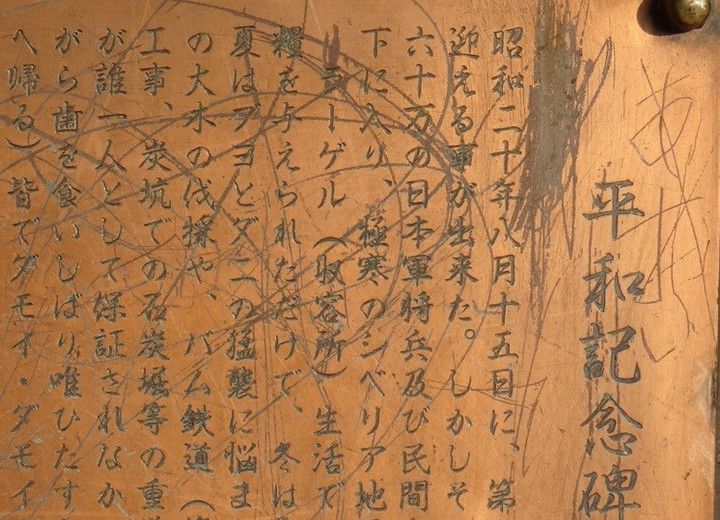 平和記念碑
昭和二十年八月十五日に、第
迎える事が出来た。しかしそ
六十万の日本軍将兵及び民間
下に入り、極寒のシベリア地
ラーゲル（収容所）生活で
糧を与えられただけで、冬は
夏はブヨとダニの猛襲に悩ま
の大木の伐採や、バム鉄道（
工事、炭坑での石炭堀等の重
が誰一人として保証されなか
がら歯を食いしばり唯ひたす
へ帰る）皆でダモイ・ダモイ